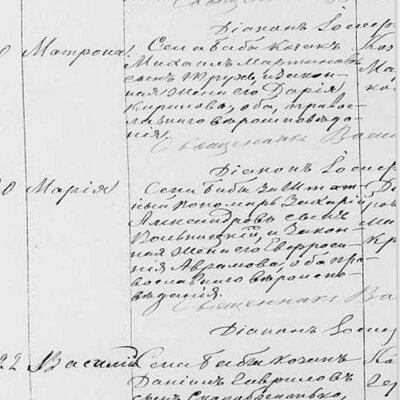 Діаконъ Іосиф
Матрона
Села Бабы козакъ
Михаилъ Мартиновъ
сынъ Трухъ, и закон-
ная жена его Дарія
Кирилова, оба право-
славнаго вѣроисповѣда-
нія.
Священникъ Васи
Діаконъ Іосиф
0 Марія
Села Бабы Заштат-
ный пономарь Захарій
Александровъ сынъ
и закон-
ная жена его Евфроси-
нія Аврамова, оба пра-
вославнаго вѣроиспо-
вѣданія.
Священникъ Ва
Діаконъ Іосиф
22 Василій
Села Бабы козакъ
Даніилъ Гавриловъ
сынъ